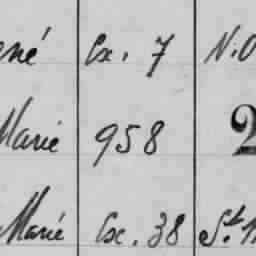 ené Ex. 7 N.O
Marie 958 2
Marié Exc. 38 St. 1